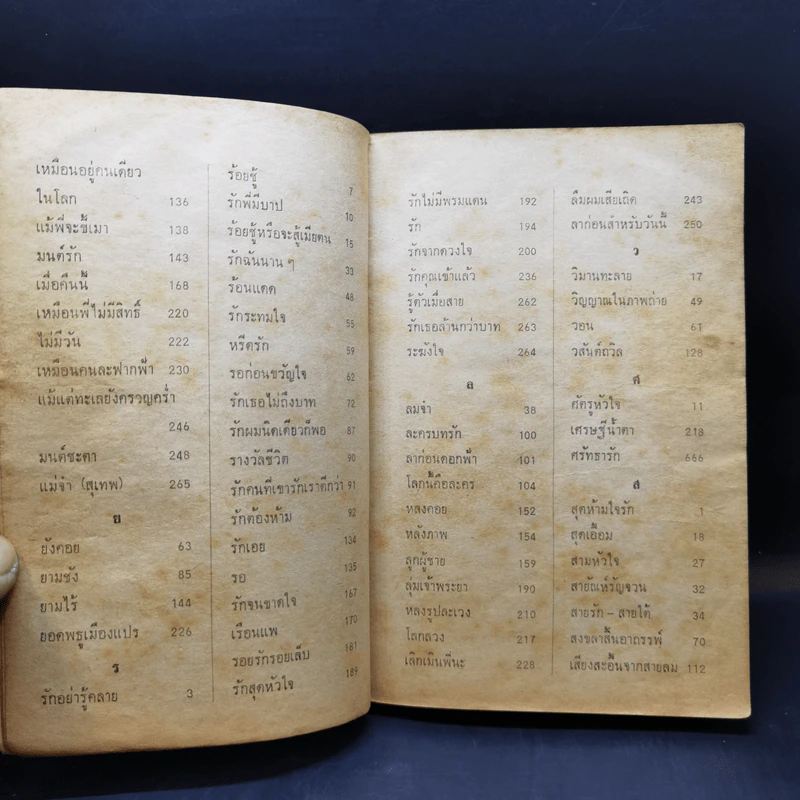 เหมือนอยู่คนเดียว
ในโลก 136
แม้พี่จะขี้เมา 138
มนต์รัก 143
เมื่อคืนนี้ 168
เหมือนพี่ไม่มีสิทธิ์ 220
ไม่มีวัน 222
เหมือนคนละฟากฟ้า 230
แม้แต่ทะเลยังครวญคร่ำ
246
มนต์ชะตา 248
แม่จ๋า (สุเทพ) 265
ย
ยังคอย 63
ยามชัง 85
ยามไร้ 144
ยอดพธูเมืองแปร 226
ร
รักอย่ารู้คลาย 3
ร้อยชู้ 7
รักพี่มีบาป 10
ร้อยชู้หรือจะสู้เมียตน 15
รักฉันนาน ๆ 33
ร้อนแดด 48
รักระทมใจ 55
หรีดรัก 59
รอก่อนขวัญใจ 62
รักเธอไม่ถึงบาท 72
รักผมนิดเดียวก็พอ 87
รางวัลชีวิต 90
รักคนที่เขารักเราดีกว่า 91
รักต้องห้าม 92
รักเอย 134
รอ 135
รักจนขาดใจ 167
เรือนแพ 170
รอยรักรอยเล็บ 181
รักสุดหัวใจ 189
รักไม่มีพรมแดน 192
รัก 194
รักจากดวงใจ 200
รักคุณเข้าแล้ว 236
รู้ตัวเมื่อสาย 262
รักเธอล้านกว่าบาท 263
ระฆังใจ 264
ล
ลมจ๋า 38
ละครบทรัก 100
ลาก่อนดอกฟ้า 101
โลกนี้คือละคร 104
หลงคอย 152
หลังภาพ 154
ลูกผู้ชาย 159
ลุ่มเจ้าพระยา 190
หลงรูปละเวง 210
โลกลวง 217
เลิกเมินพี่นะ 228
ลืมผมเสียเถิด 243
ลาก่อนสำหรับวันนี้ 250
ว
วิมานทะลาย 17
วิญญาณในภาพถ่าย 49
วอน 61
วสันต์ถวิล 128
ศ
ศัตรูหัวใจ 11
เศรษฐีน้ำตา 218
ศรัทธารัก 666
ส
สุดห้ามใจรัก 1
สุดเอื้อม 18
สามหัวใจ 27
สายัณห์รัญจวน 32
สายรัก - สายใต้ 34
สงขลาสิ้นอาถรรพ์ 70
เสียงสะอื้นจากสายลม 112